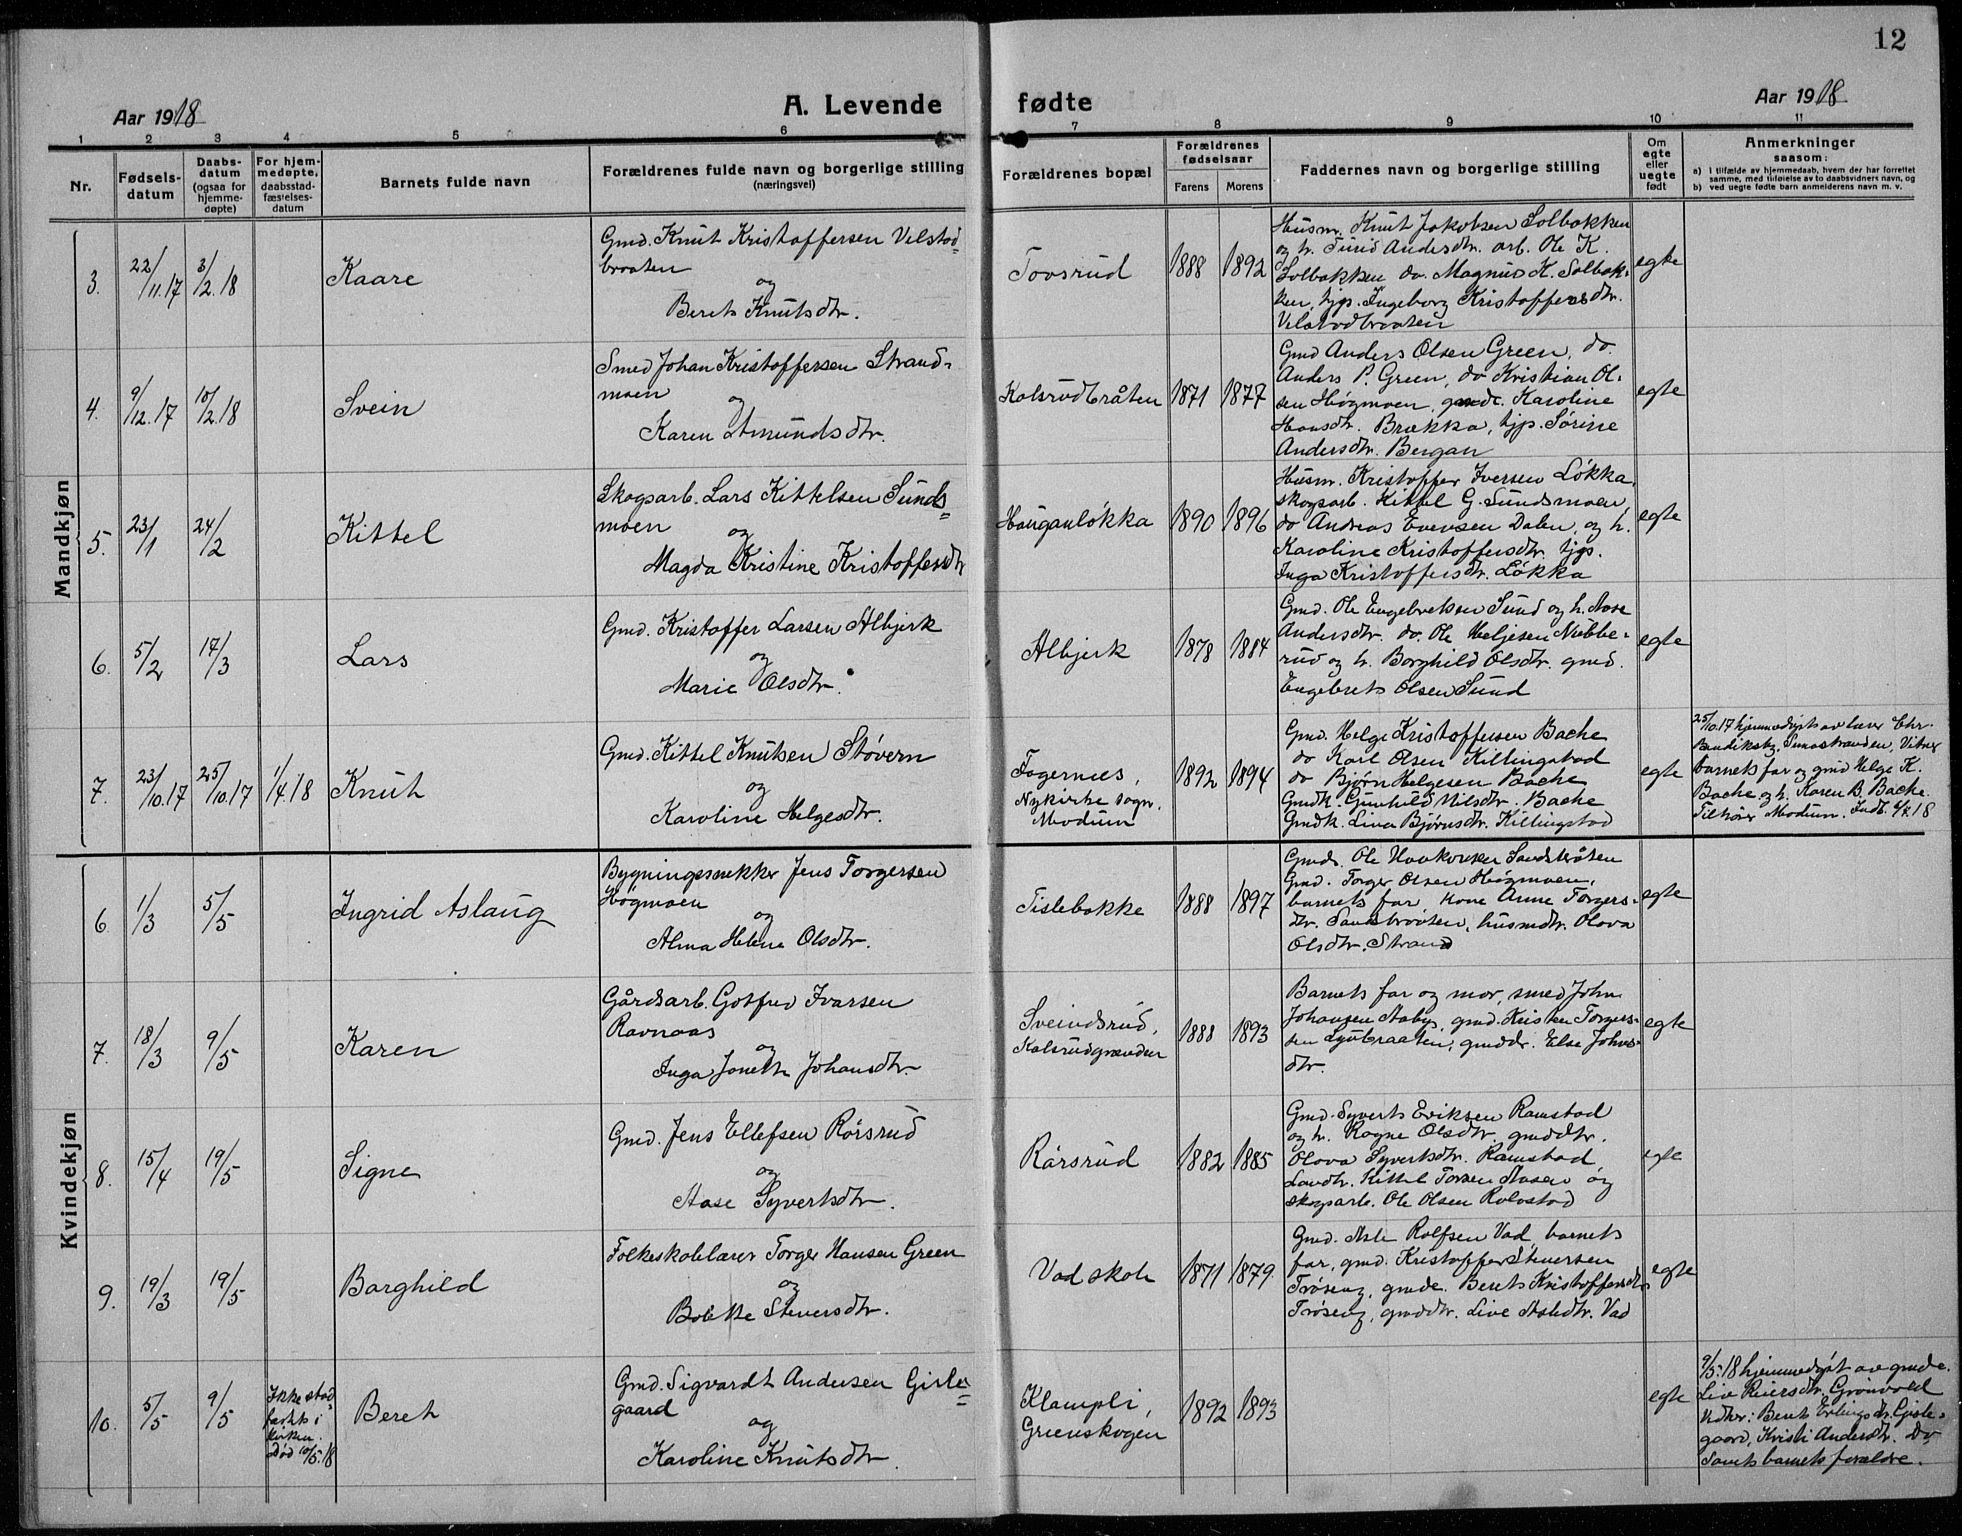 12
Aar 1918
A. Levende fødte
Aar 1918
1 2 3 4 5 6 7 8 9 10 11
Nr.
Fødsels-
datum
Daabs-
datum
(ogsaa for
hjemme-
døpte)
For hjem-
medøpte,
daabsstad-
fæstelses-
datum
Barnets fulde navn
Forældrenes fulde navn og borgerlige stilling
(næringsvei)
Forældrenes bopæl
Forældrenes
fødselsaar
Farens Morens
Faddernes navn og borgerlige stilling
Om
egte
eller
uegte
født
Anmerkninger
saasom:
a) I tilfælde av hjemmedaab, hvem der har forrettet
samme, med tilføielse av to daabsvidners navn, og
b) ved uegte fødte barn anmelderens navn m. v.
Mandkjøn
3. 22/11.17 3/2.18 Kaare
Gmd. Knut Kristoffersen Velstad=
braaten
og
Berets Knutsdtr.
Tovsrud 1888 1892
Husm. Knut Jakobsen Solbakken
og h. Turid Andersdtr. arb. Ole K.
Solbakken do. Magnus K. Solbak-
ken, tjp. Ingeborg Kristoffersdtr.
Velstadbraaten
egte
4. 9/12.17 10/2.18 Svein
Smed Johan Kristoffersen Strand=
moen
og
Karen Amundsdtr.
Kolsrudbråten 1871 1877
Gmd Anders Olsen Green, do.
Anders P. Green, do Kristian Ol-
sen Høgmoen, gmdk. Karoline
Hansdtr. Brække, tjp. Sørine
Andersdtr. Bergan
egte
5. 23/1 24/2 Kittel
Skogsarb. Lars Kittelsen Sunds=
moen
og
Magda Kristine Kristoffersdtr
Hauganløkka 1890 1896
Husm. Kristoffer Iversen Løkka
skogsarb. Kittel G. Sundsmoen,
do Andreas Evensen Dalen og h.
Karoline Kristoffersdtr. tjp.
Inga Kristoffersdtr. Løkka
egte
6. 5/2 17/3 Lars
Gmd. Kristoffer Larsen Albjerk
og
Marie Olsdtr.
Albjerk 1878 1884
Gmd. Ole Engebretsen Sund og h. Aase
Andersdtr. do. Ole Heljesen Nubbe-
rud og h. Borghild Olsdtr. gmd.
Engebret Olsen Sund
egte
7. 23/10.17 25/10.17 1/4.18 Knut
Gmd. Kittel Knutsen Støvern
og
Karoline Helgesdtr.
Fagernes,
Nykirke sogn,
Modum
1892 1894
Gmd. Helge Kristoffersen Bache
do Karl Olsen Killingstad
do Bjørn Helgesen Bache
Gmdk. Gunhild Nilsdtr. Bache
Gmdk. Lina Bjørnsdtr. Killingstad
egte
25/10.17 hjemmedøpt av lærer Chr.
barnets far og gmd Helge K.
Bache og h. Karen B. Bache.
Tilhører Modum.
Kvindekjøn
6. 1/3 5/5 Ingrid Aslaug
Bygningssnekker Jens Torgersen
Høgmoen
og
Alma Helene Olsdtr.
Tislebakke 1888 1897
Gmd. Ole Haakonsen Sandsbråten
Gmd. Torger Olsen Høgmoen,
barnets far, kone Anne Torgers-
dtr. Sandsbråten, husmdtr. Olava
Olsdtr. Strand
egte
7. 18/3 9/5 Karen
Gårdsarb. Gotfred Ivarsen
Ravnaas
og
Inga Jonette Johansdtr.
Sveindsrud,
Kolsrudgrænden
1888 1893
Barnets far og mor, smed John
Johansen Aaby, gmd. Kristen Torgers-
sen Lybraaten, gmddr. Else Johns-
dtr.
egte
8. 15/4 19/5 Signe
Gmd. Jens Ellefsen Rørsrud
og
Aase Syvertsdtr.
Rørsrud 1882 1885
Gmd. Syvert Eriksen Ramstad
og h. Ragne Olsdtr. gmddtr.
Olava Syvertsdtr. Ramstad
Landh. Kittel Torsen Aasen og
skogsarb. Ole Olsen Rolvstad
egte
9. 19/3 19/5 Borghild
Folkeskolelærer Torger Hansen Green
og
Bolette Stenersdtr.
Vad skole 1871 1879.
Gmd. Asle Rolfsen Vad, barnets
far, gmd. Kristoffer Stenersen
Trøseng, gmdk. Berets Kristoffersdtr
Trøseng, gmddtr. Live Asledtr. Vad
egte
10. 5/5 9/5
Ikke stad=
fæstet i
kirken.
Død 10/5.18
Beret
Gmd. Sigvardt Andersen Gisle=
gaard
og
Karoline Knutsdtr.
Klampli,
Greenskogen
1892 1893
egte
9/5.18 hjemmedøpt av gmdk.
Live Reiersdtr. Grønvold
Vidner: Berit Erlingsdtr. Gisle-
gaard, Kristi Andersdtr. Do,
Samt barnets forældre.